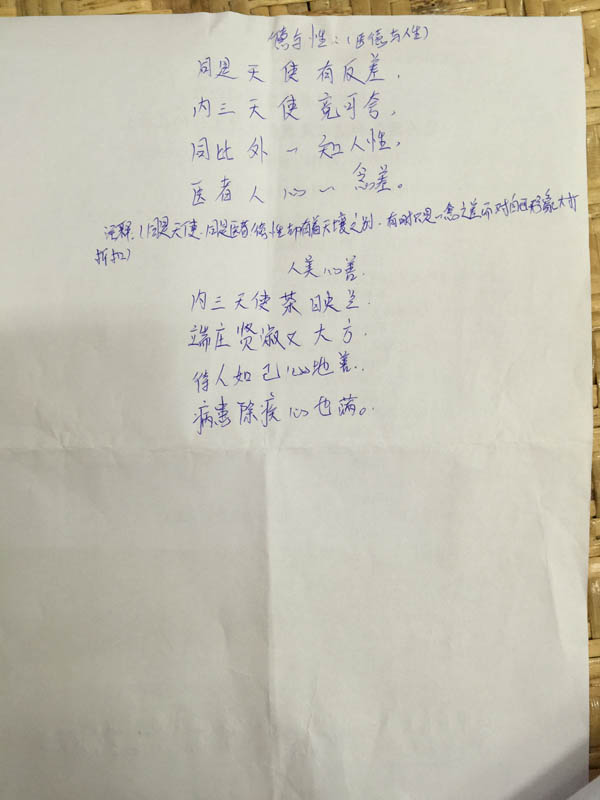 德与性:(医德与人性)
同是天使有反差,
内三天使竞可夸,
同比外一知人性,
医者人心一念差。
注释:(同是天使.同是医者德性却有着天壤之别.有时只是一念之差而对自己形象大打
折扣)
人美心善.
内三天使茶映兰.
端庄贤淑又大方.
待人如己心地善.
病患除疾心也满。